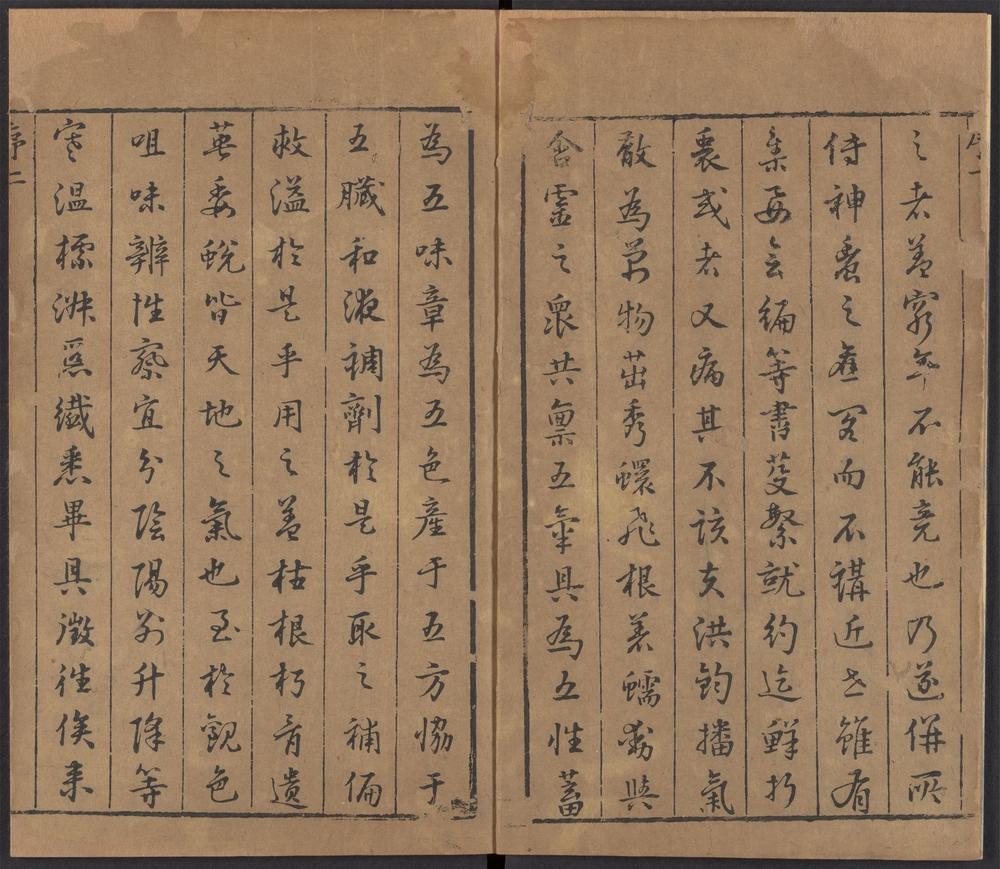 序一
之者蓋窮年不能竟也乃遂併所
傳神農之舊而不講近世雖有
集要會編等書芟繁就約迄鮮折
衷或者又病其不該夫洪鈞播氣
散為萬物茁秀蠉飛根荄蠕動與
含靈之眾共稟五氣具為五性蓄
為五味章為五色產于五方協于
五臟和液調劑於是乎取之補偏
救溢於是乎用之蓋枯根朽骨遺
英委蛻皆天地之氣也至於觀色
咀味辨性察宜分陰陽別升降等
寒溫標纖悉畢具徵往俟來
序二